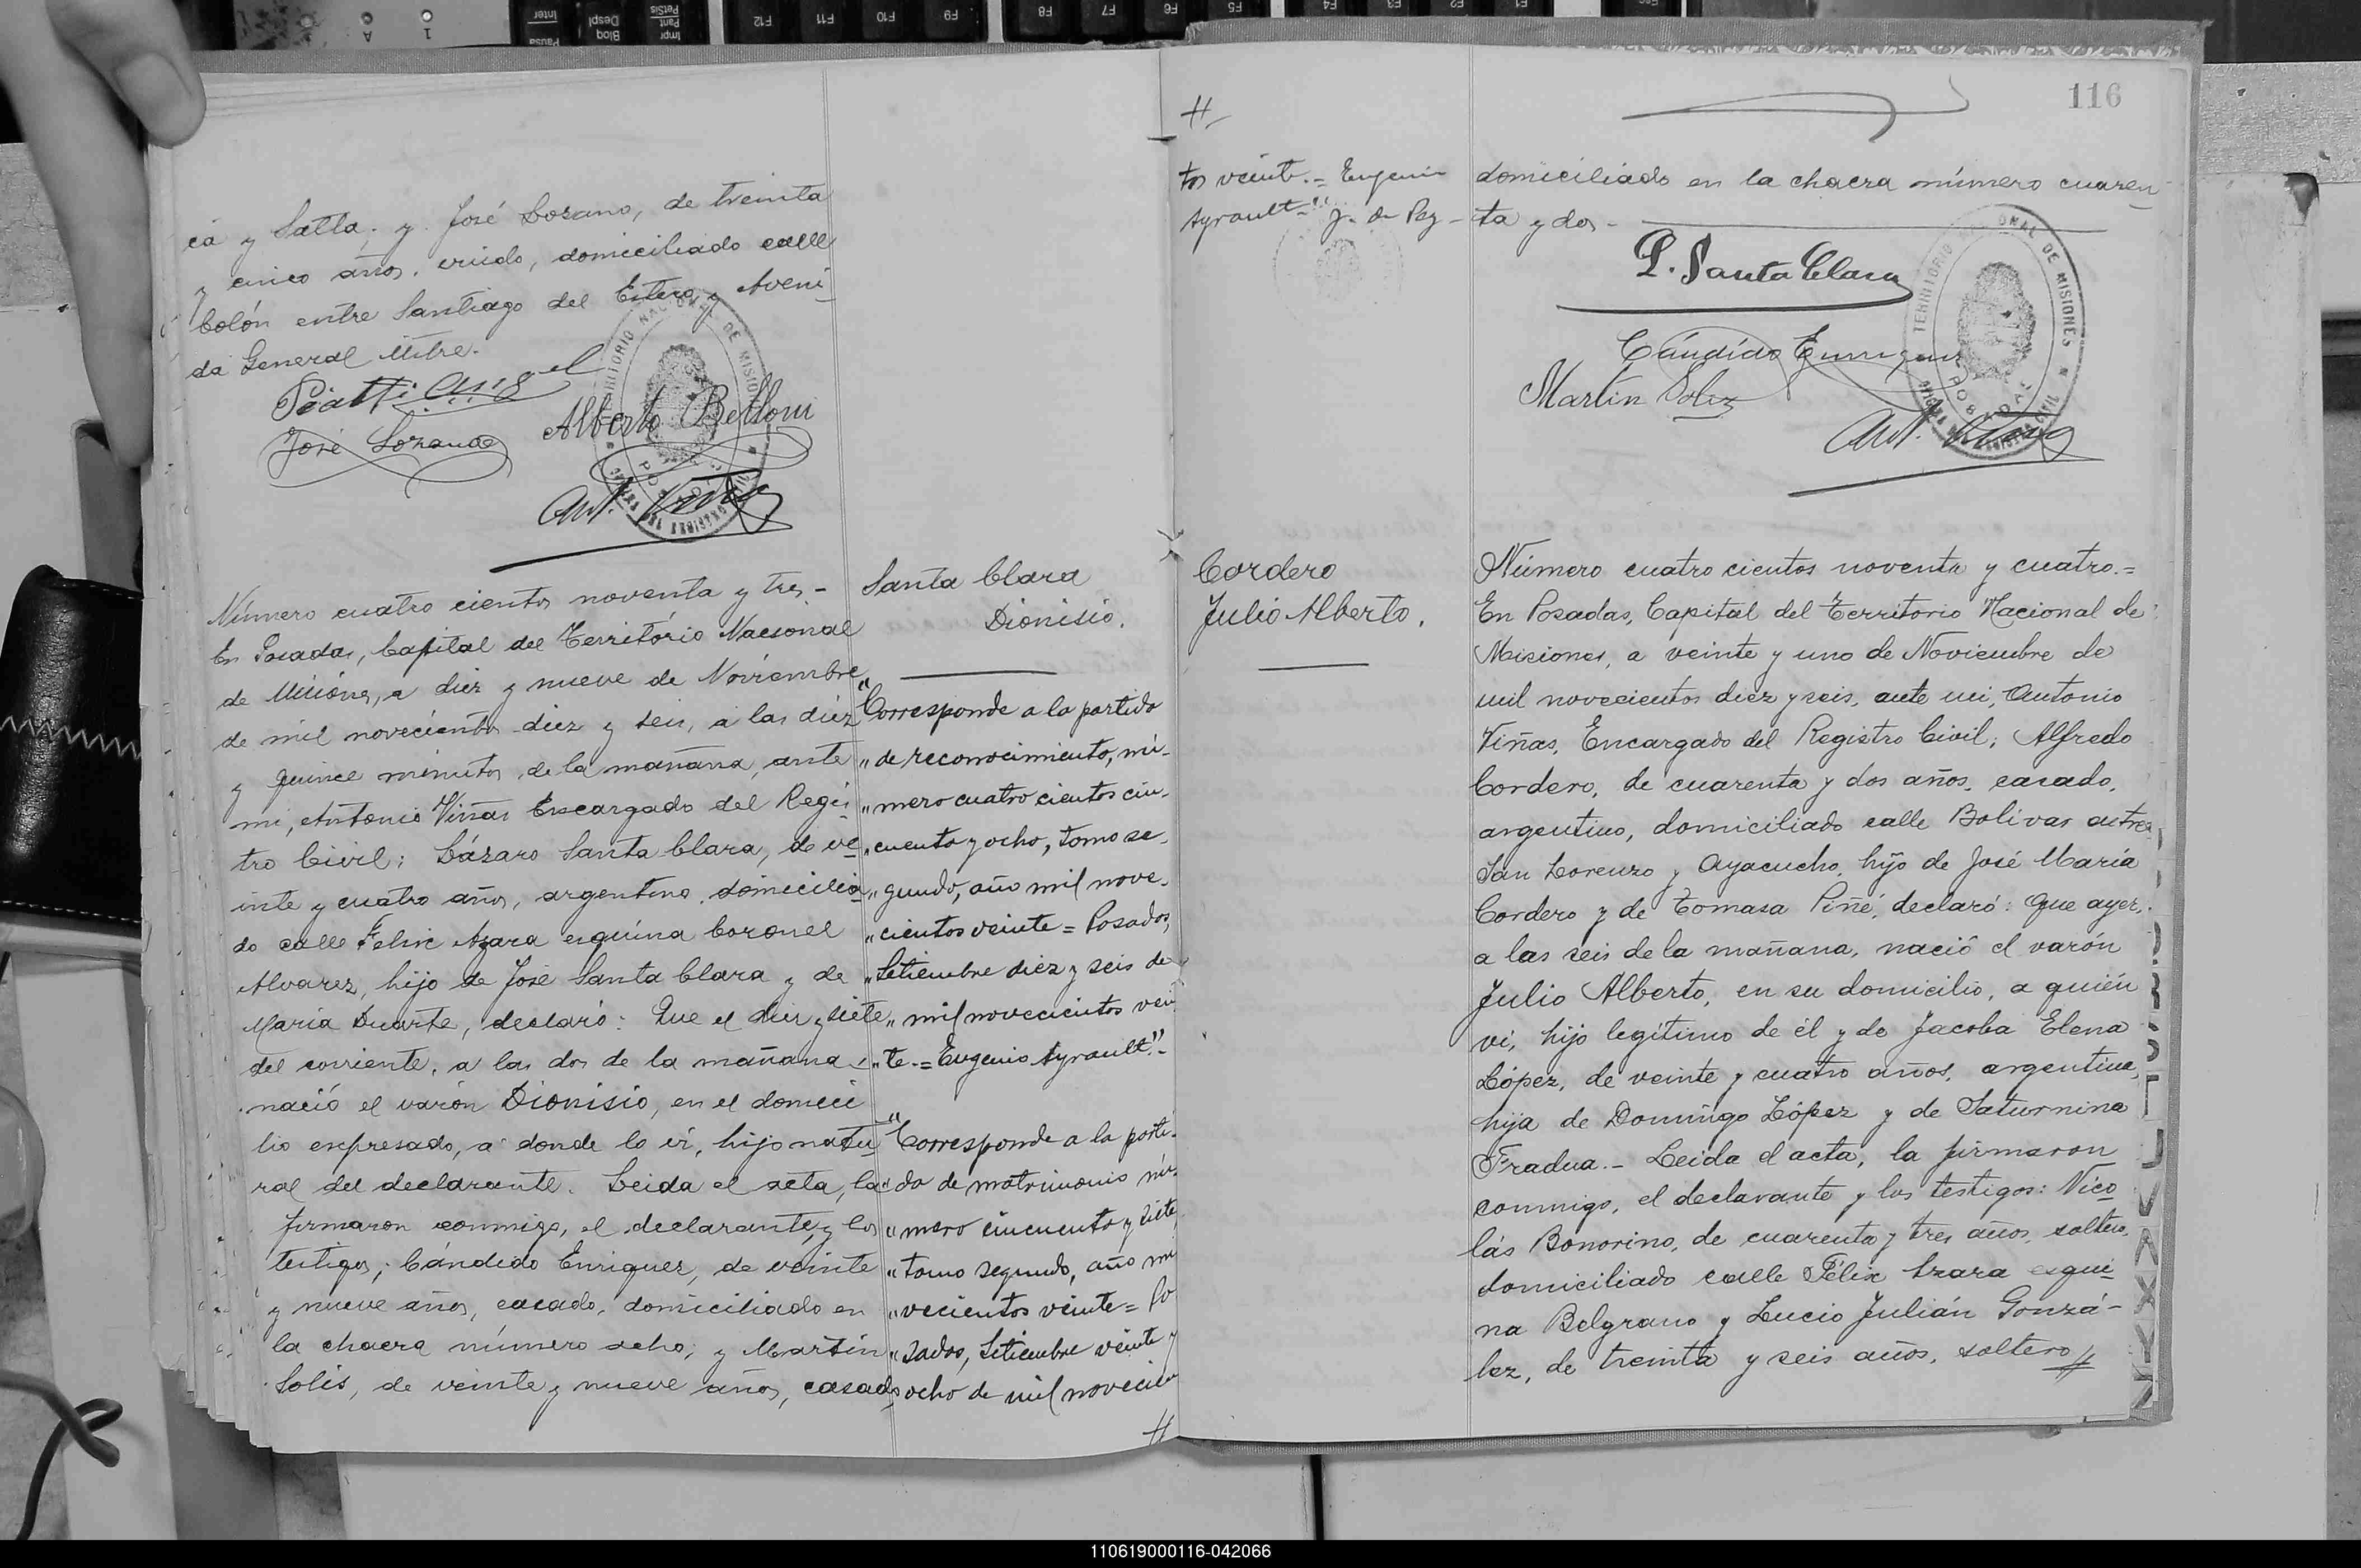 ca y Salta; y José Lozano, de treinta
y cinco años, viudo, domiciliado calle
Colón entre Santiago del Estero y Aveni
da General Mitre.
Piatti Angel
Alberto Belloni
José Lozano
Ant. Viñas
TERRITORIO NACIONAL DE MISIONES
POSADAS
Número cuatro cientos noventa y tres.-
En Posadas, Capital del Território Nacional
de Misiones, a diez y nueve de Noviembre
de mil novecientos diez y seis, a las diez
y quince minutos de la mañana, ante
mi, Antonio Viñas Encargado del Regis
tro Civil: Lázaro Santa Clara, de ve
inte y cuatro años, argentino, domicilia
do calle Felix Azara esquina Coronel
Alvarez, hijo de José Santa Clara y de
María Duarte, declaró: Que el diez y siete
del corriente, a las dos de la mañana,
nació el varón Dionisio, en el domici
lio expresado, a donde lo ví, hijo natu
ral del declarante. Leida el acta, la
firmaron conmigo, el declarante, y los
testigos; Cándido Enriquez, de veinte
y nueve años, casado, domiciliado en
la chacra número ocho; y Martín
Solis, de veinte y nueve años, casado,
Santa Clara
Dionisio.
"Corresponde a la partida
"de reconocimiento, nú-
"mero cuatro cientos cin-
"cuenta y ocho, tomo se-
"gundo, año mil nove-
"cientos veinte = Posadas,
"Setiembre diez y seis de
"mil novecientos vein
"te.= Eugenio Ayrault."-
"Corresponde a la parti-
"da de matrimonio nú-
"mero cincuenta y siete
"tomo segundo, año mi
"vecientos veinte = Po
"sadas, Setiembre veinte y
ocho de mil novecien
//
//
tos veinte.= Eugenio
Ayrault-" J. de Paz-
116
domiciliado en la chacra número cuaren
ta y dos-
L. Santa Clara
Cándido Enriquez
Martín Solis
Ant. Viñas
TERRITORIO NACIONAL DE MISIONES
POSADAS
Cordero
Julio Alberto.
Número cuatro cientos noventa y cuatro.=
En Posadas, Capital del Território Nacional de
Misiones, a veinte y uno de Noviembre de
mil novecientos diez y seis, ante mi, Antonio
Viñas, Encargado del Registro Civil; Alfredo
Cordero, de cuarenta y dos años, casado,
argentino, domiciliado calle Bolivar entre
San Lorenzo y Ayacucho, hijo de José María
Cordero y de Tomasa Piñé, declaró: Que ayer,
a las seis de la mañana, nació el varón
Julio Alberto, en su domicilio, a quién
ví, hijo legítimo de él y de Jacoba Elena
López, de veinte y cuatro años, argentina,
hija de Domingo López y de Saturnina
Fradua.- Leida el acta, la firmaron
conmigo, el declarante y los testigos: Nico
lás Bonorino, de cuarenta y tres años, soltero,
domiciliado calle Félix Azara esqui
na Belgrano y Lucio Julián Gonzá-
lez, de treinta y seis años, soltero //
110619000116-042066